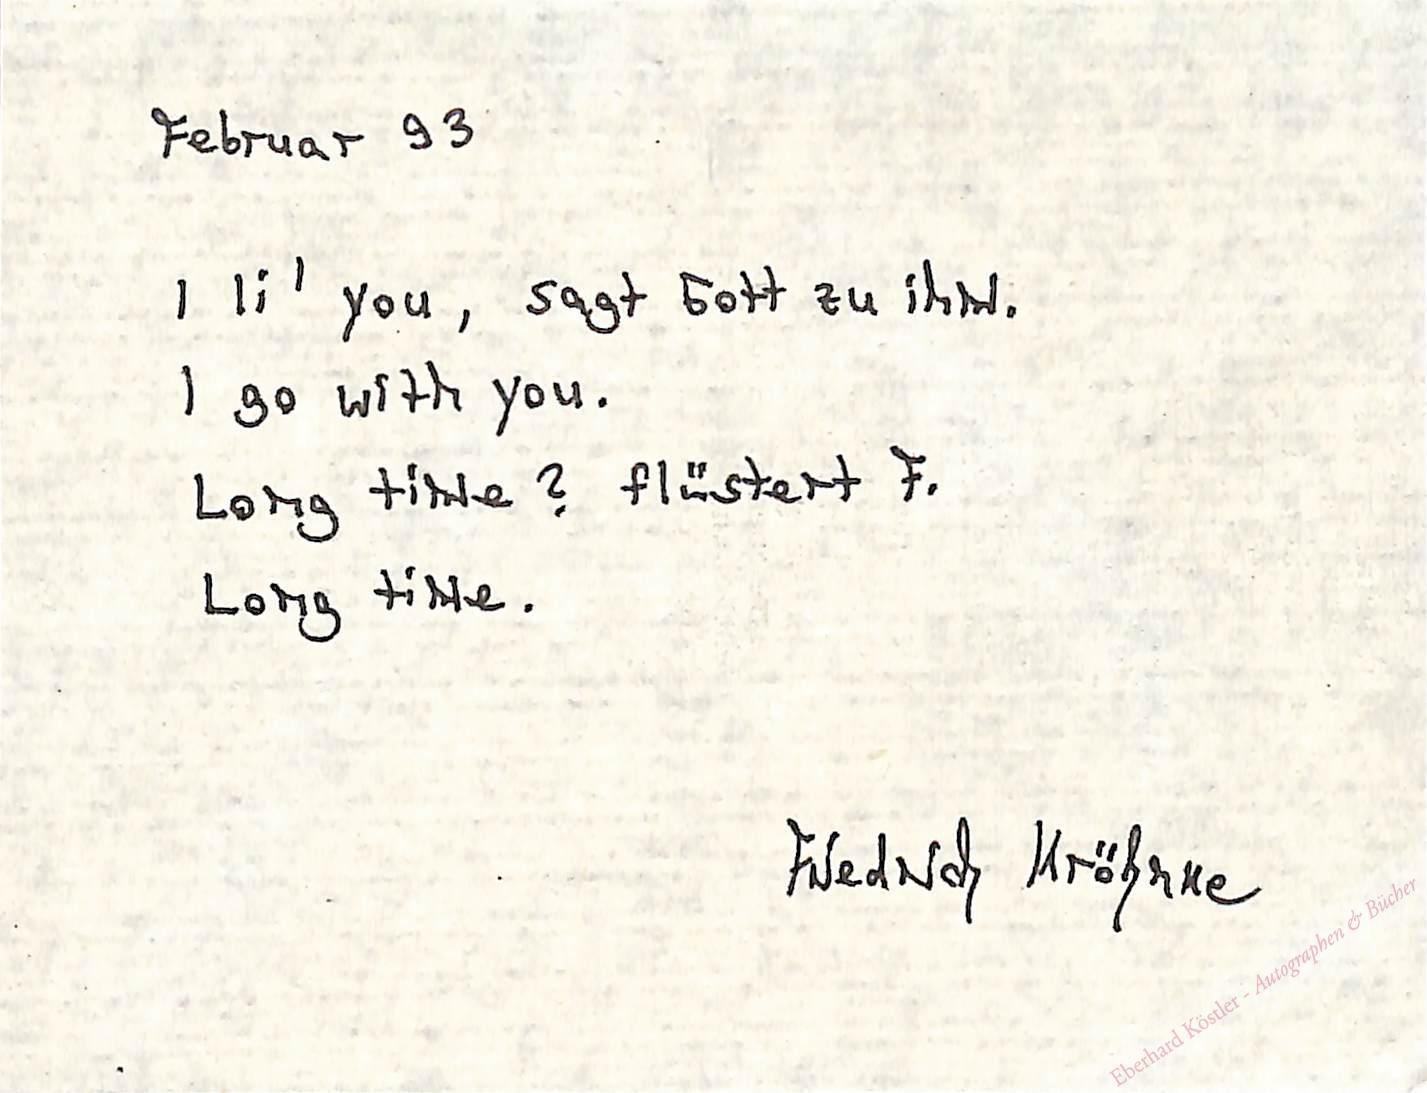 Februar 93
I li' you, sagt Gott zu ihm.
I go with you.
Long time? flüstert F.
Long time.
Friedrich Kröhnke
Eberhard Köstler - Autographen & Bücher